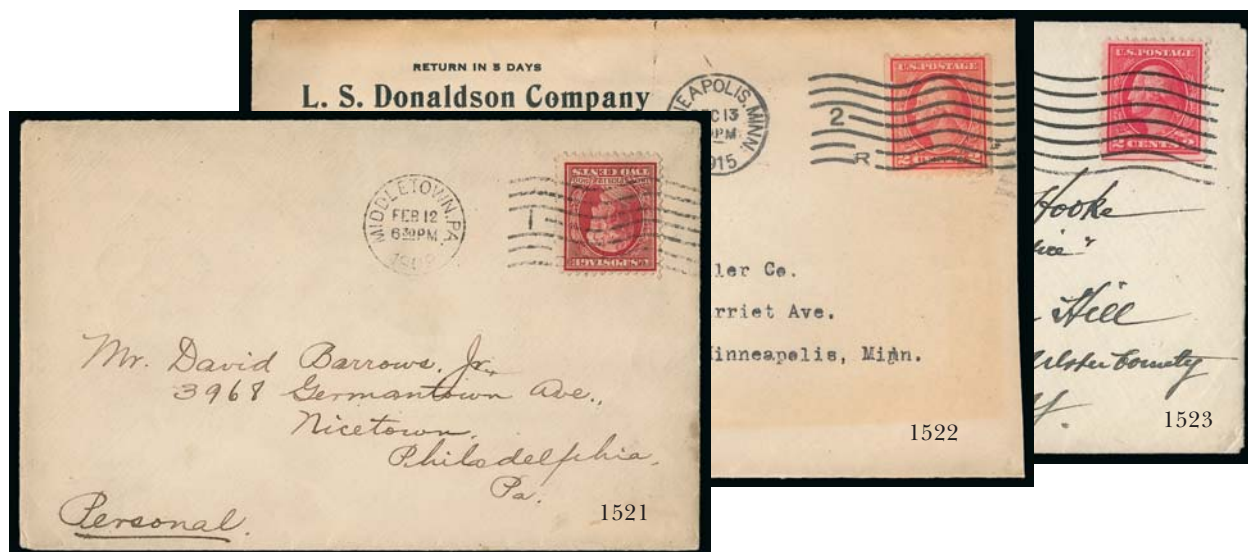 RETURN IN 5 DAYS
L. S. Donaldson Company
NEAPOLIS, MINN.
13
PM
1915
2
R
U.S. POSTAGE
2 CENTS 2
ler Co.
rriet Ave.
inneapolis, Minn.
1522
U.S. POSTAGE
2 CENTS 2
Hooke
Hill
Ulster County
Y.
1523
MIDDLETOWN, PA.
FEB 12
6 30 PM
1
U.S. POSTAGE
TWO CENTS
Mr. David Barrows, Jr.,
3968 Germantown Ave.,
Nicetown,
Philadelphia,
Pa.
Personal.
1521